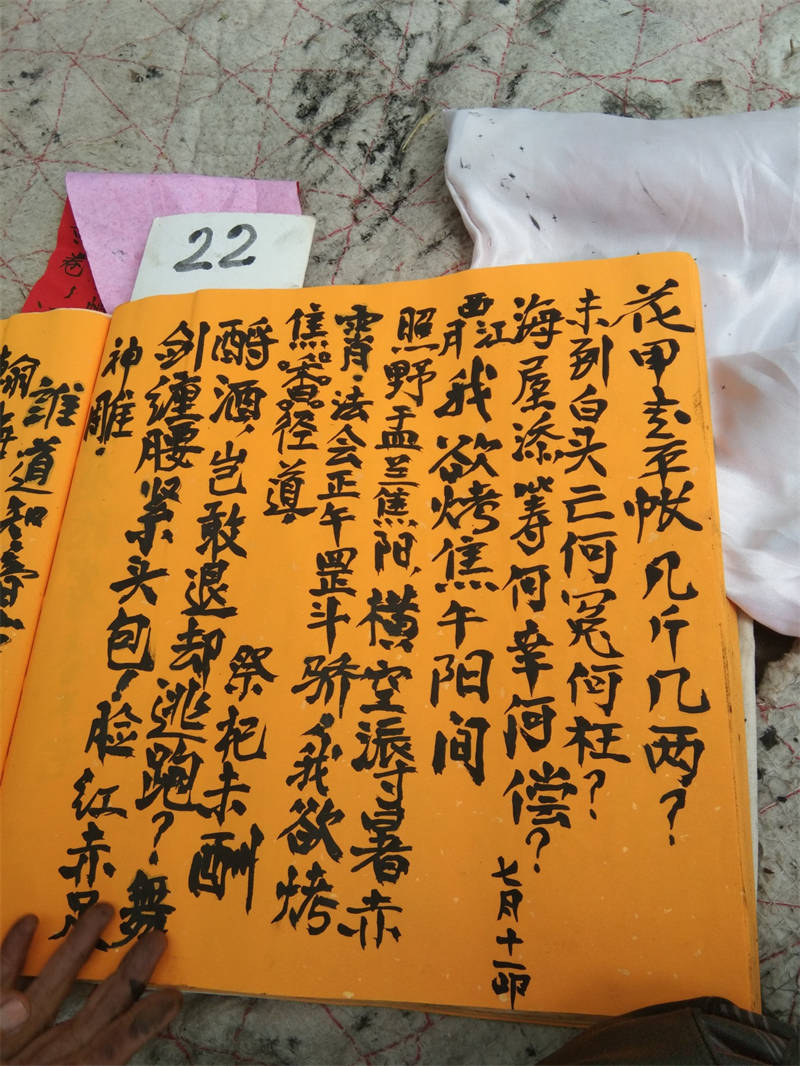 22
卷
花甲去年帐几斤几两？
未到白头亡何冤何枉？
海屋添筹何幸何偿？
七月十一卯
西江月 我欲烤焦午阳间
照野盂兰焦阳，横空派寸暑赤
霄，法会正午罡斗骄，我欲烤
焦香径道。
酹酒，岂敢退却 祭祀未酬
剑缠腰紧头包，逃跑？舞
神雕，脸红赤足
谁道知